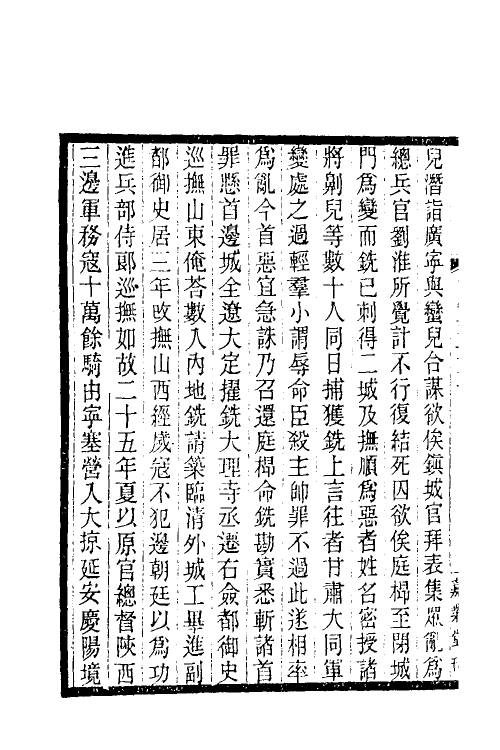 兒潛詣廣寧與蠻兒合謀欲俟鎮城官拜表集眾亂爲
總兵官劉淮所覺計不行復結死囚欲俟庭㭿至閉城
門爲變而銑已刺得二城及撫順爲惡者姓名密授諸
將剿兒等數十人同日捕獲銑上言往者甘肅大同軍
變處之過輕羣小謂辱命臣殺主帥罪不過此遂相率
爲亂今首惡宜急誅乃召還庭㭿命銑勘實悉斬諸首
罪懸首邊城全遼大定擢銑大理寺丞遷右僉都御史
巡撫山東俺荅數入內地銑請築臨清外城工畢進副
都御史居三年改撫山西經歲寇不犯邊朝廷以爲功
進兵部侍郞巡撫如故二十五年夏以原官總督陜西
三邊軍務寇十萬餘騎由寧塞營入大掠延安慶陽境